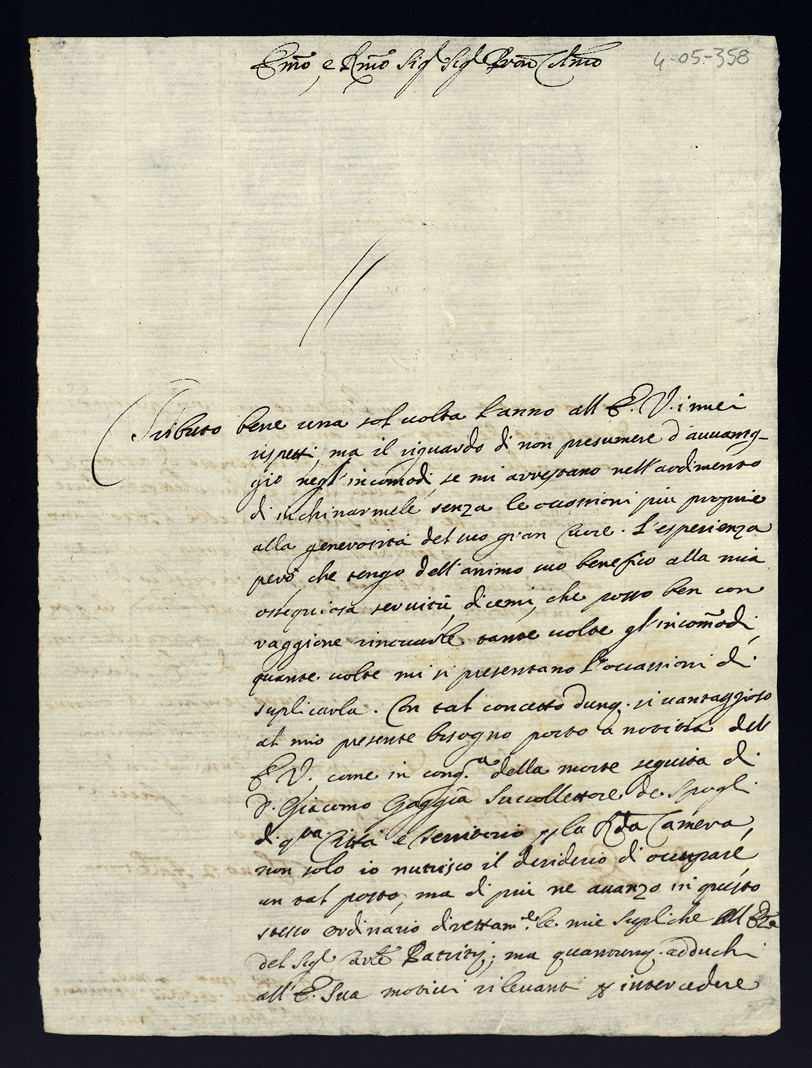 Emõ, e Rmõ Sig.r Sig.r Pron Colmõ
4-05-358
Tributo bene una sol volta l'anno all'E.V. i miei
rispetti, ma il riguardo di non presumere d'avvantag-
gio negl'incomodi, se mi arrestano nell'ardimento
di inchinarmele senza le occasioni più proprie
alla generosità del suo gran Cuore. L'esperienza
però, che tengo dell'animo suo benefico alla mia
ossequiosa servitù, dicemi, che posso ben con
raggione rinovarle tante volte gl'incomodi,
quante volte mi si presentano l'occassioni di
suplicarla. Con tal concetto dunq. si vantaggioso
al mio presente bisogno porto a notitia dell'
E.V. come in cong.a della morte seguita di
D. Giacomo Gaggia Succollettore de Spogli
di q.sta Città e territorio p la Rda Camera,
non solo io nutrisco il desiderio di occupare
un tal posto, ma di più ne avanzo in questo
stesso ordinario direttam.te le mie supliche all'
del Sig.r Patritij; ma quantunq. adduchi
all'E. Sua motivi rilevanti p intercedere